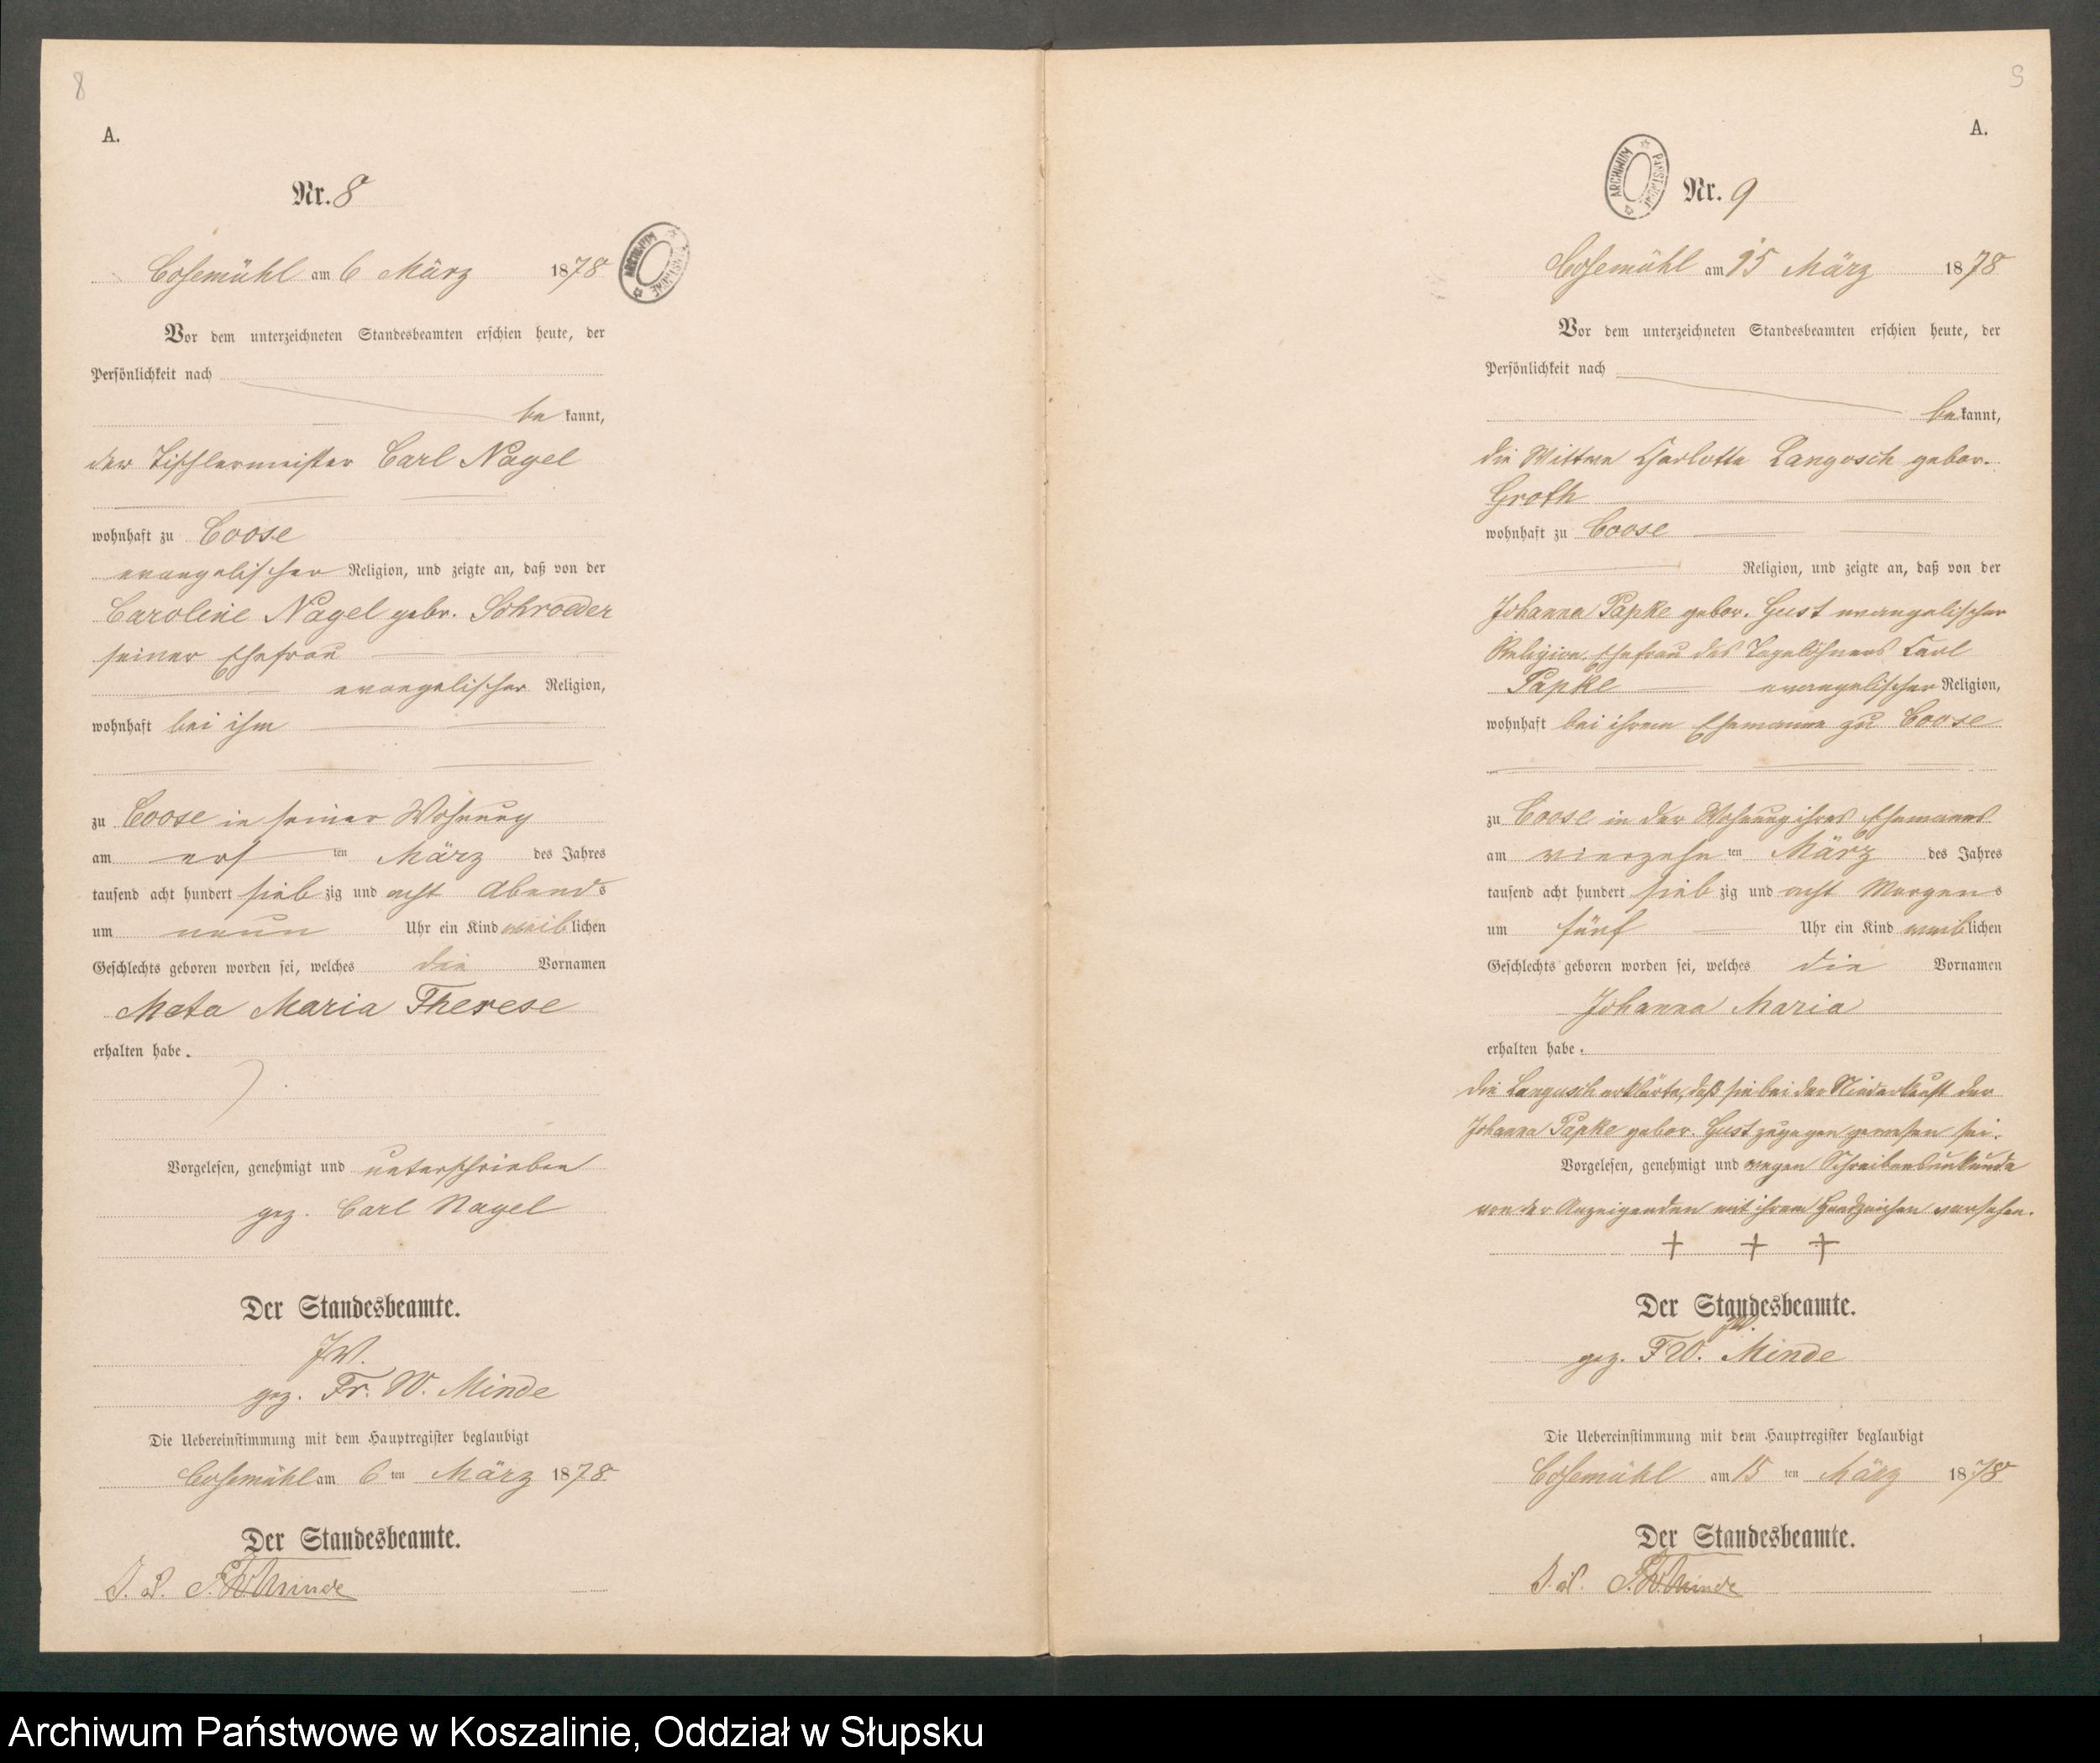 8
A.
Nr. 8
Cosemühl am 6 März 1878
ARCHIWUM PAŃSTWOWE
Vor dem unterzeichneten Standesbeamten erschien heute, der
Persönlichkeit nach
be kannt,
der Tischlermeister Carl Nagel
wohnhaft zu Coose
evangelischer Religion, und zeigte an, daß von der
Caroline Nagel gebr. Schroeder
seiner Ehefrau
evangelischer Religion,
wohnhaft bei ihm
zu Coose in seiner Wohnung
am ers ten März des Jahres
tausend acht hundert sieb zig und acht Abends
um neun Uhr ein Kind weiblichen
Geschlechts geboren worden sei, welches die Vornamen
Meta Maria Therese
erhalten habe.
Vorgelesen, genehmigt und unterschrieben
gez. Carl Nagel
Der Standesbeamte.
gez. Fr. W. Minde
Die Uebereinstimmung mit dem Hauptregister beglaubigt
Cosemühl am 6 ten März 1878
Der Standesbeamte.
F.W. Minde
9
A.
ARCHIWUM PAŃSTWOWE
Nr. 9
Cosemühl am 15 März 1878
Vor dem unterzeichneten Standesbeamten erschien heute, der
Persönlichkeit nach
be kannt,
die Wittwe Charlotte Langosch gebor.
Groth
wohnhaft zu Coose
Religion, und zeigte an, daß von der
Johanna Papke gebor. Gust evangelischer
Religion, Ehefrau des Tagelöhners Carl
Papke evangelischer Religion,
wohnhaft bei ihrem Ehemanne zu Coose
zu Coose in der Wohnung ihres Ehemannes
am vierzehn ten März des Jahres
tausend acht hundert sieb zig und acht Morgens
um fünf Uhr ein Kind weiblichen
Geschlechts geboren worden sei, welches die Vornamen
Johanna Maria
erhalten habe.
Die Langosch erklärte, daß sie bei der Niederkunft der
Johanna Papke gebor. Gust zugegen gewesen sei.
Vorgelesen, genehmigt und wegen Schreibensunkunde
von der Anzeigenden mit ihrem Handzeichen versehen.
+ + +
Der Standesbeamte.
gez. F W. Minde
Die Uebereinstimmung mit dem Hauptregister beglaubigt
Cosemühl am 15 ten März 1878
Der Standesbeamte.
F.W. Minde
Archiwum Państwowe w Koszalinie, Oddział w Słupsku